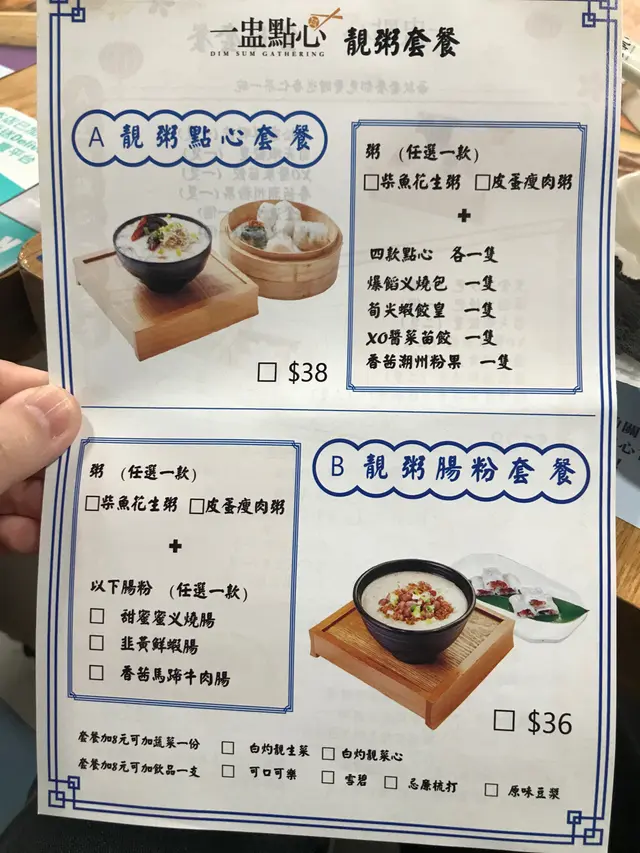 一盅點心
DIM SUM GATHERING
靚粥套餐
A 靚粥點心套餐
粥 (任選一款)
□柴魚花生粥 □皮蛋瘦肉粥
+
四款點心 各一隻
爆餡义燒包 一隻
荀尖蝦餃皇 一隻
XO醬菜苗餃 一隻
香茜潮州粉果 一隻
□ $38
B 靚粥腸粉套餐
粥 (任選一款)
□柴魚花生粥 □皮蛋瘦肉粥
+
以下腸粉 (任選一款)
□ 甜蜜蜜义燒腸
□ 韭黃鮮蝦腸
□ 香茜馬蹄牛肉腸
□ $36
套餐加8元可加蔬菜一份 □ 白灼靚生菜 □ 白灼靚菜心
套餐加8元可加飲品一支 □ 可口可樂 □ 雪碧 □ 忌廉梳打 □ 原味豆漿